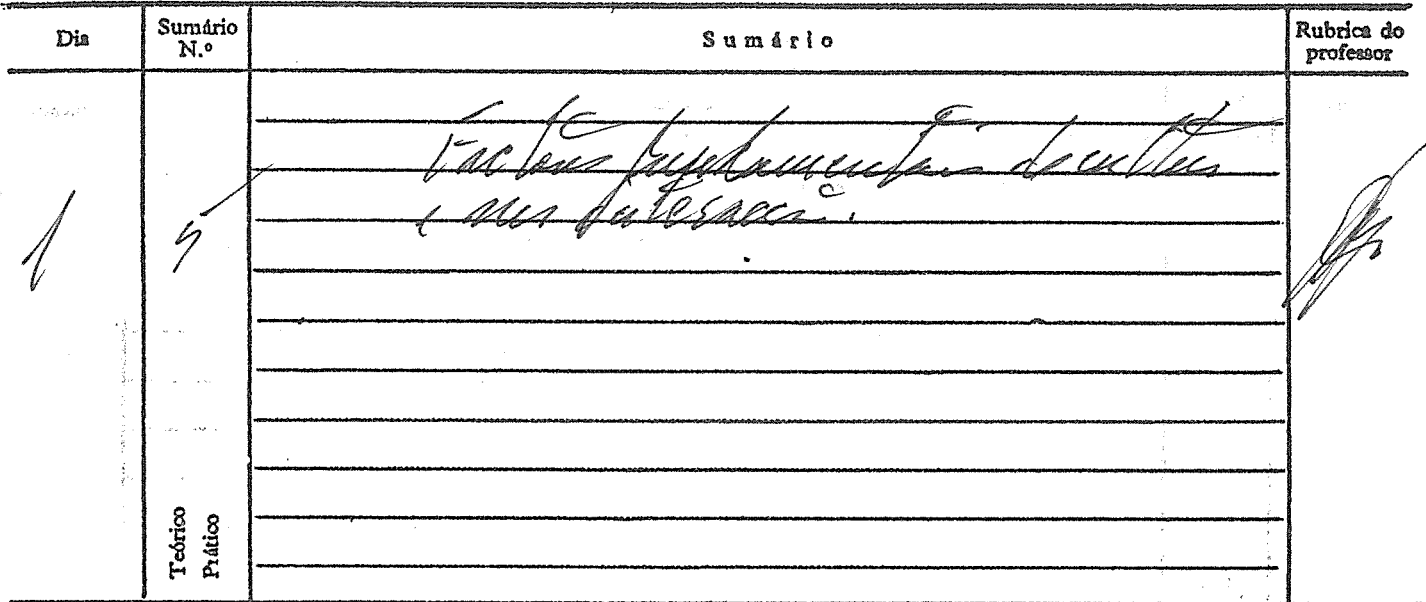 Dia
Sumário
N.º
Sumário
Rubrica do
professor
1
5
Factores fundamentais da cultura
e sua interacção.
Teórico
Prático